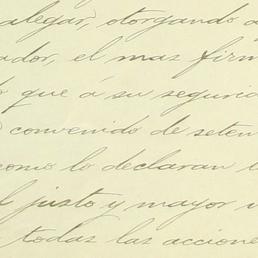 alegar, otorgando a
ador, el mas firm
que á su seguri
convenido de seten
como lo declaran
justo y mayor
todas las accione